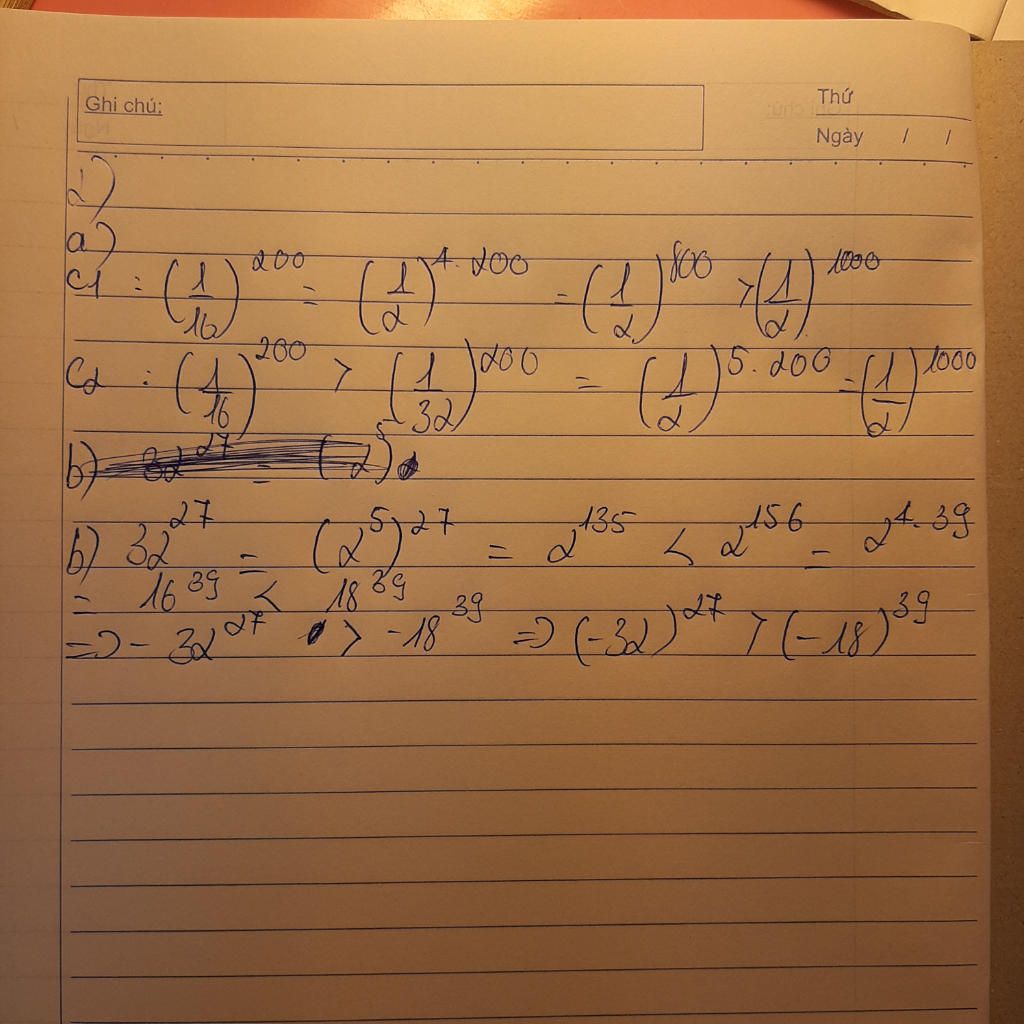 Ghi chú:
Thứ
Ngày / /
1)
a)
C1 : (1/16)^200 = (1/2)^4.200 = (1/2)^800 > (1/2)^1000
C2 : (1/16)^200 > (1/32)^200 = (1/2)^5.200 = (1/2)^1000
b) 32^27 = (2)^5
b) 32^27 = (2^5)^27 = 2^135 < 2^156 = 2^4.39
= 16^39 < 18^39
=> - 32^27 > -18^39 => (-32)^27 > (-18)^39